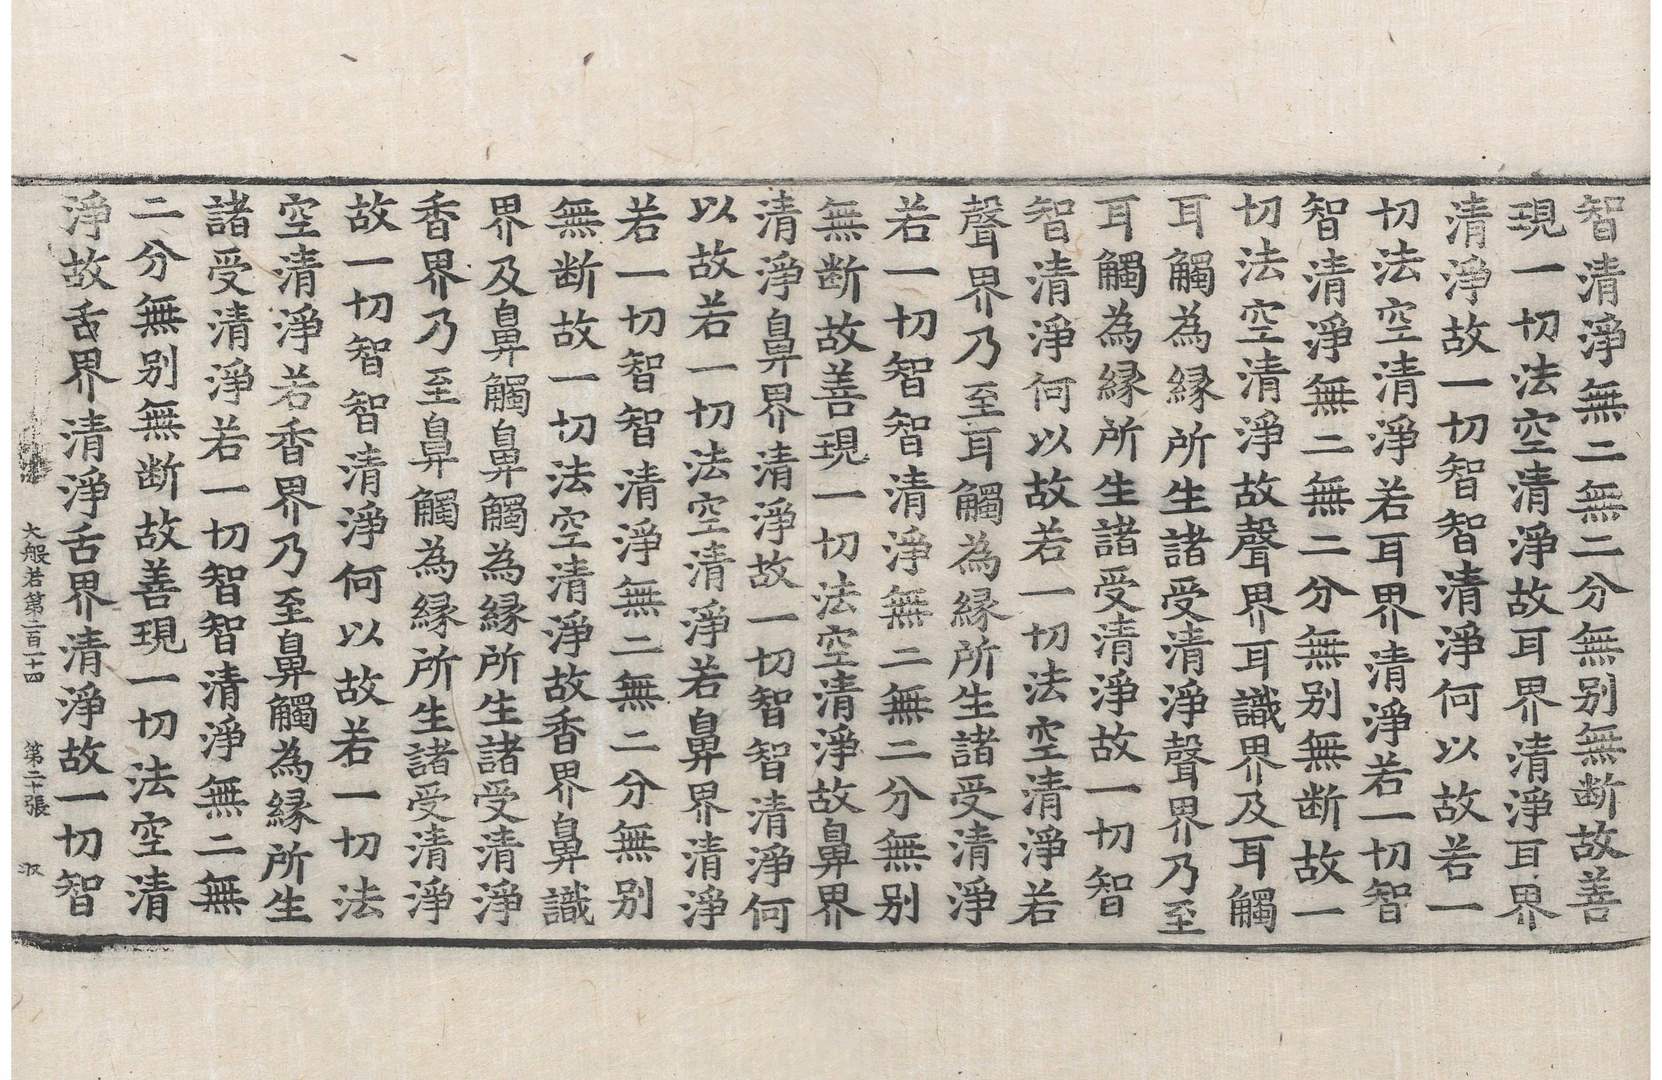 智清淨無二無二分無别無断故善
現一切法空清淨故耳界清淨耳界
清淨故一切智智清淨何以故若一
切法空清淨若耳界清淨若一切智
智清淨無二無二分無别無断故一
切法空清淨故聲界耳識界及耳觸
耳觸為縁所生諸受清淨聲界乃至
耳觸為縁所生諸受清淨故一切智
智清淨何以故若一切法空清淨若
聲界乃至耳觸為縁所生諸受清淨
若一切智智清淨無二無二分無别
無断故善現一切法空清淨故鼻界
清淨鼻界清淨故一切智智清淨何
以故若一切法空清淨若鼻界清淨
若一切智智清淨無二無二分無别
無断故一切法空清淨故香界鼻識
界及鼻觸鼻觸為縁所生諸受清淨
香界乃至鼻觸為縁所生諸受清淨
故一切智智清淨何以故若一切法
空清淨若香界乃至鼻觸為縁所生
諸受清淨若一切智智清淨無二無
二分無别無断故善現一切法空清
淨故舌界清淨舌界清淨故一切智
大般若第二百一十四 第二十張 収